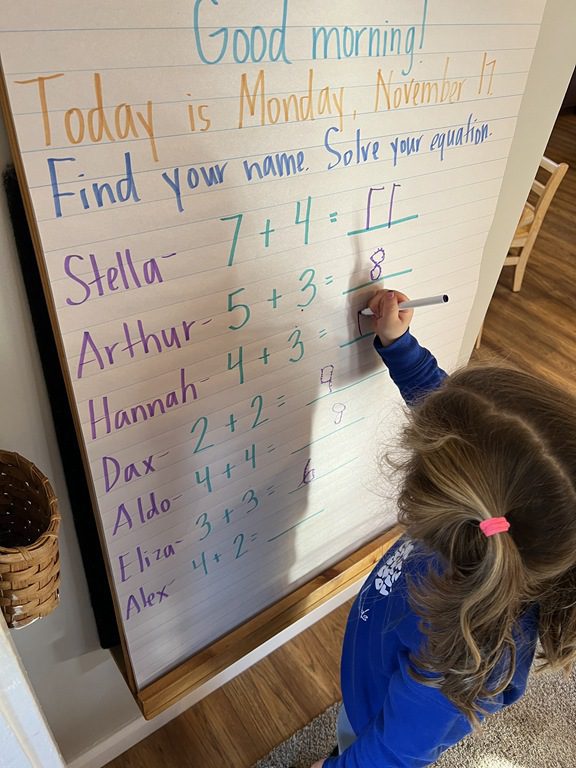 Good morning!
Today is Monday, November 17.
Find your name. Solve your equation.
Stella- 7 + 4 = 11
Arthur- 5 + 3 = 8
Hannah- 4 + 3 =
Dax- 2 + 2 = 4
Aldo- 4 + 4 = 9
Eliza- 3 + 3 = 6
Alex- 4 + 2 =